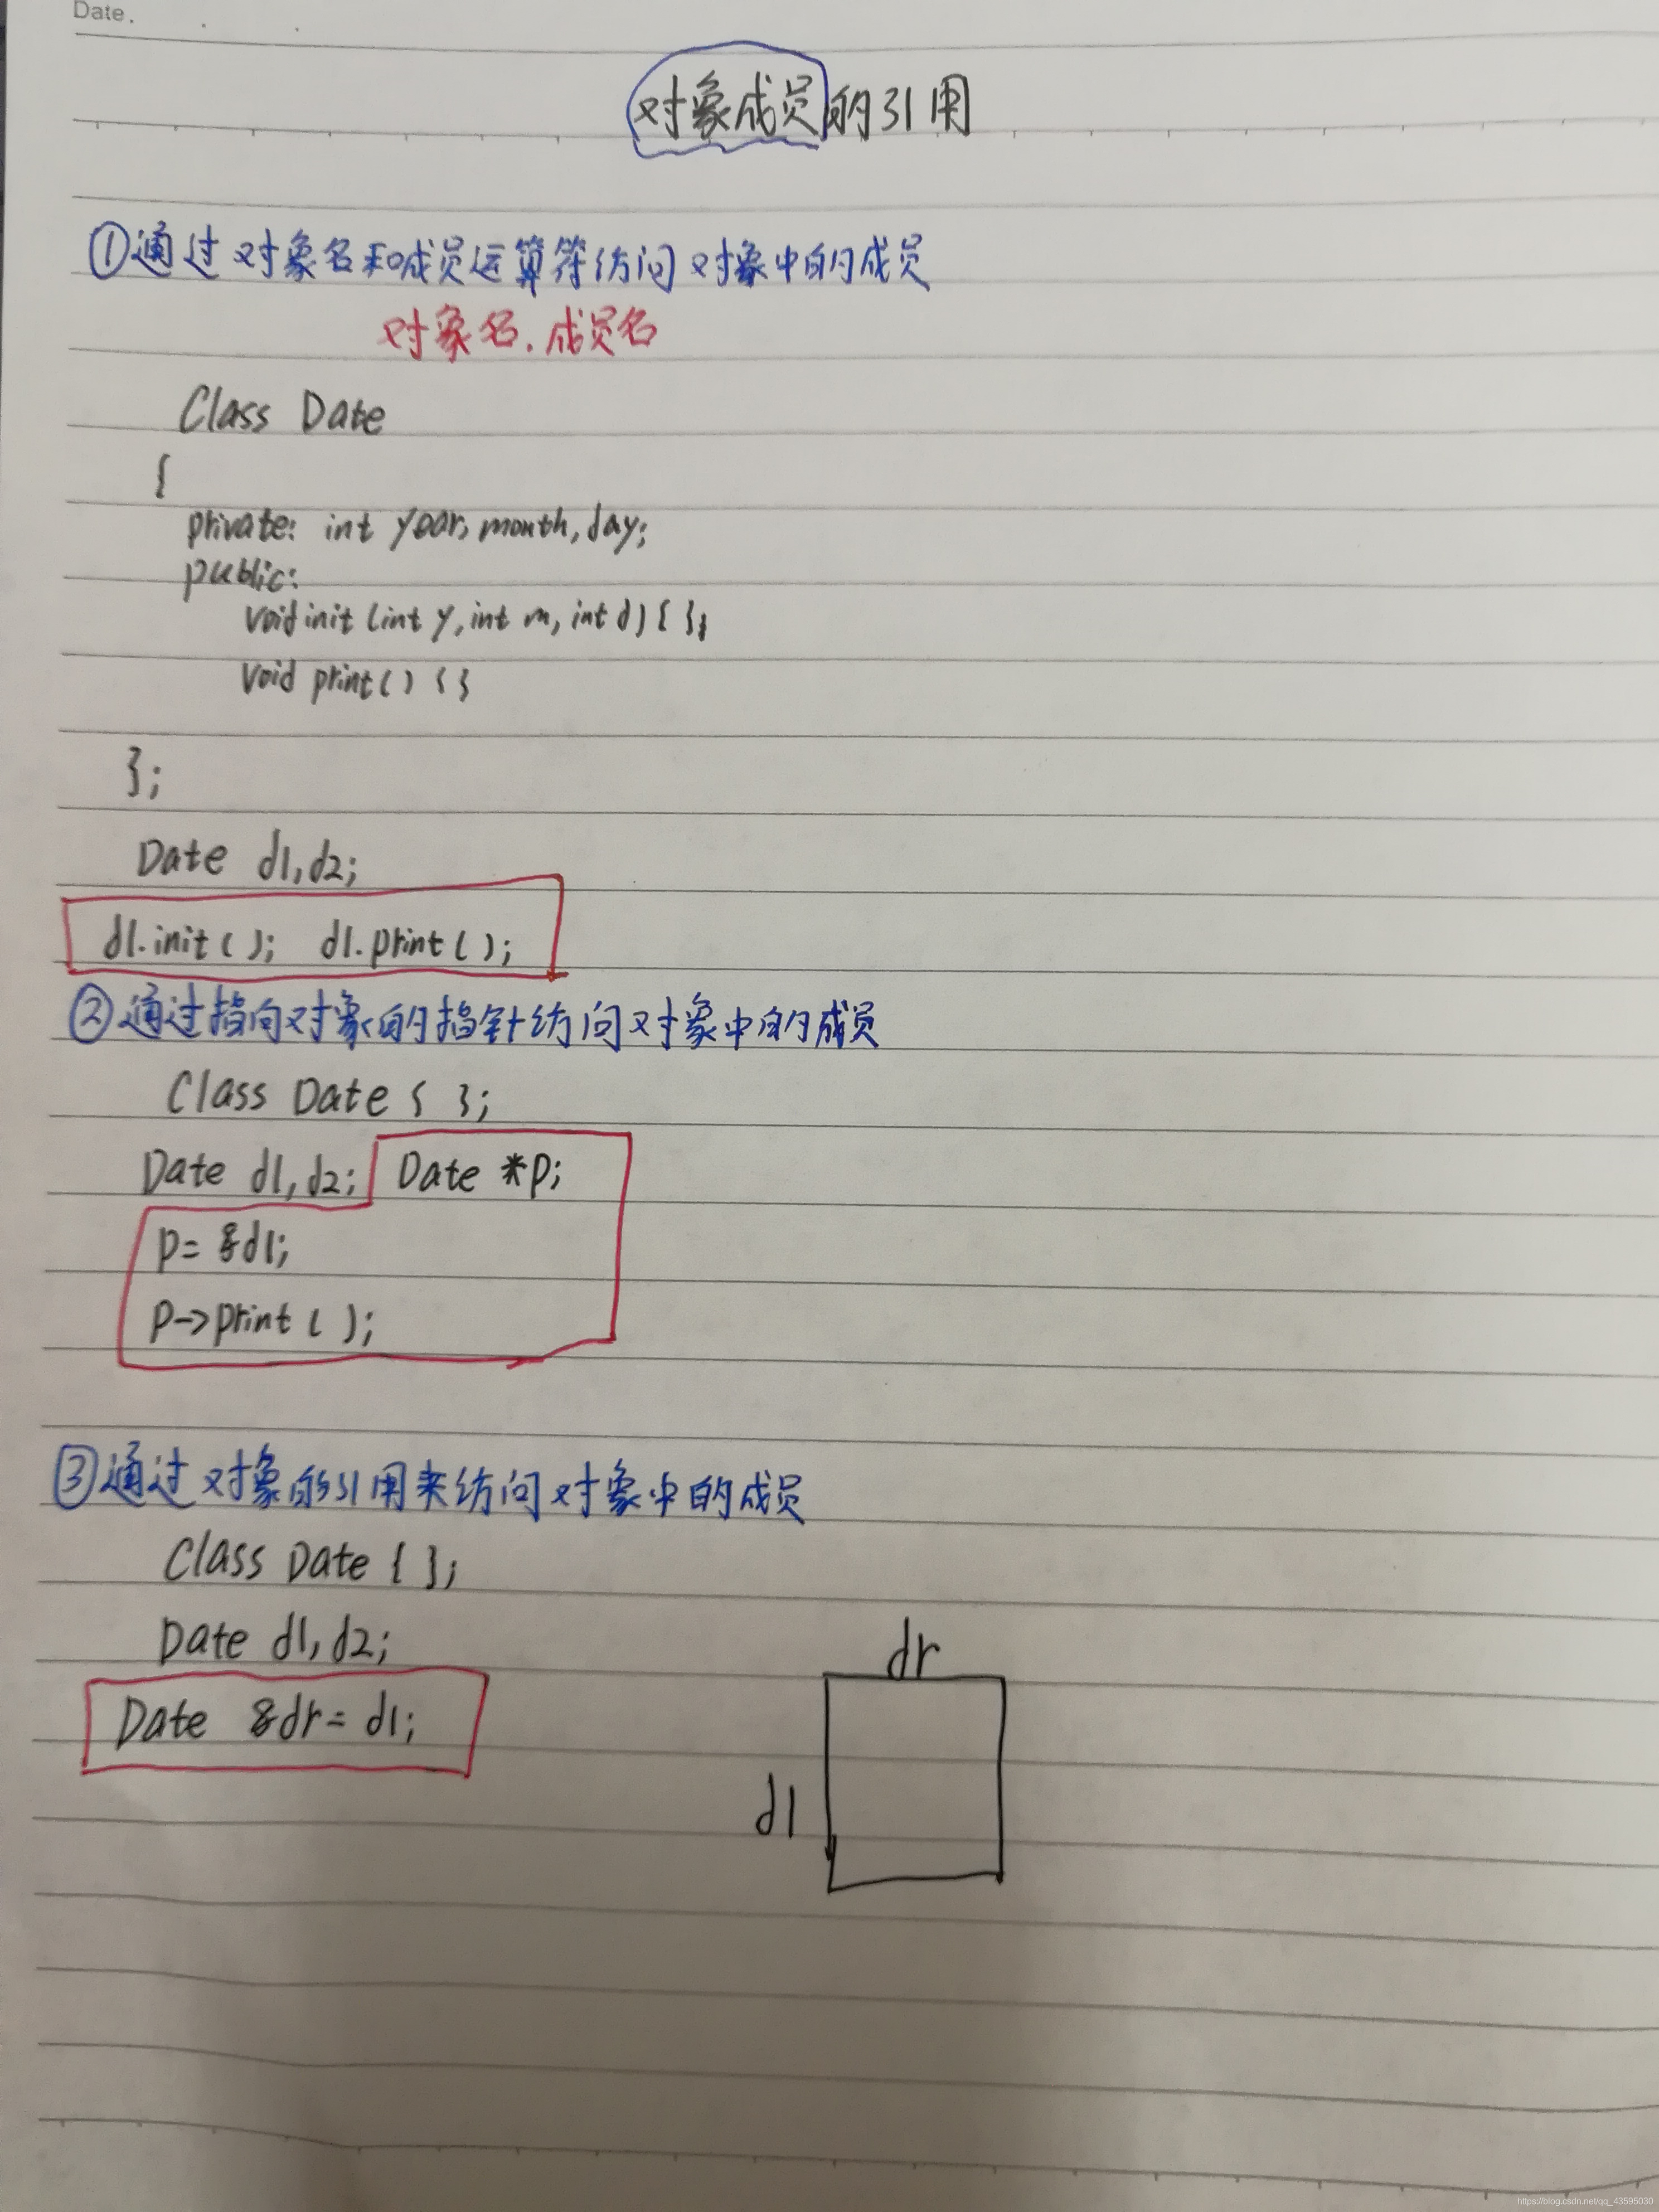 Date.
对象成员的引用
①通过对象名和成员运算符访问对象中的成员
对象名.成员名
Class Date
{
private: int year, month, day;
public:
void init (int y, int m, int d) { };
void print() { }
};
Date d1,d2;
d1.init(); d1.print();
②通过指向对象的指针访问对象中的成员
Class Date { };
Date d1,d2; Date *p;
p= &d1;
p->print();
③通过对象的引用来访问对象中的成员
Class Date { };
Date d1,d2;
dr
Date &dr= d1;
d1
https://blog.csdn.net/qq_43595030